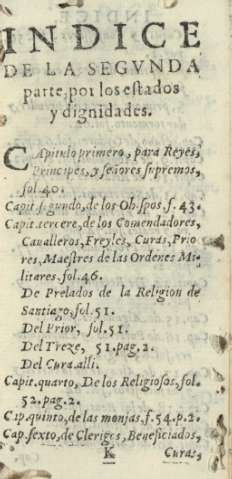 INDICE
DE LA SEGVNDA
parte, por los estados
y dignidades.
CApitulo primero, para Reyes,
Principes, y señores supremos,
fol. 40.
Capit. segundo, de los Obispos, f. 43.
Capit. tercere, de los Comendadores,
Caualleros, Freyles, Curas, Prio
res, Maestres de las Ordenes Mi-
litares. fol. 46.
De Prelados de la Religion de
Santiago, fol. 51.
Del Prior, fol. 51.
Del Treze, 51. pag. 2.
Del Cura. alli.
Capit. quarto, De los Religiosos, fol.
52. pag. 2.
Cap. quinto, de las monjas, f. 54. p. 2.
Cap. sexto, de Clerigos, Beneficiados,
K
Curas,